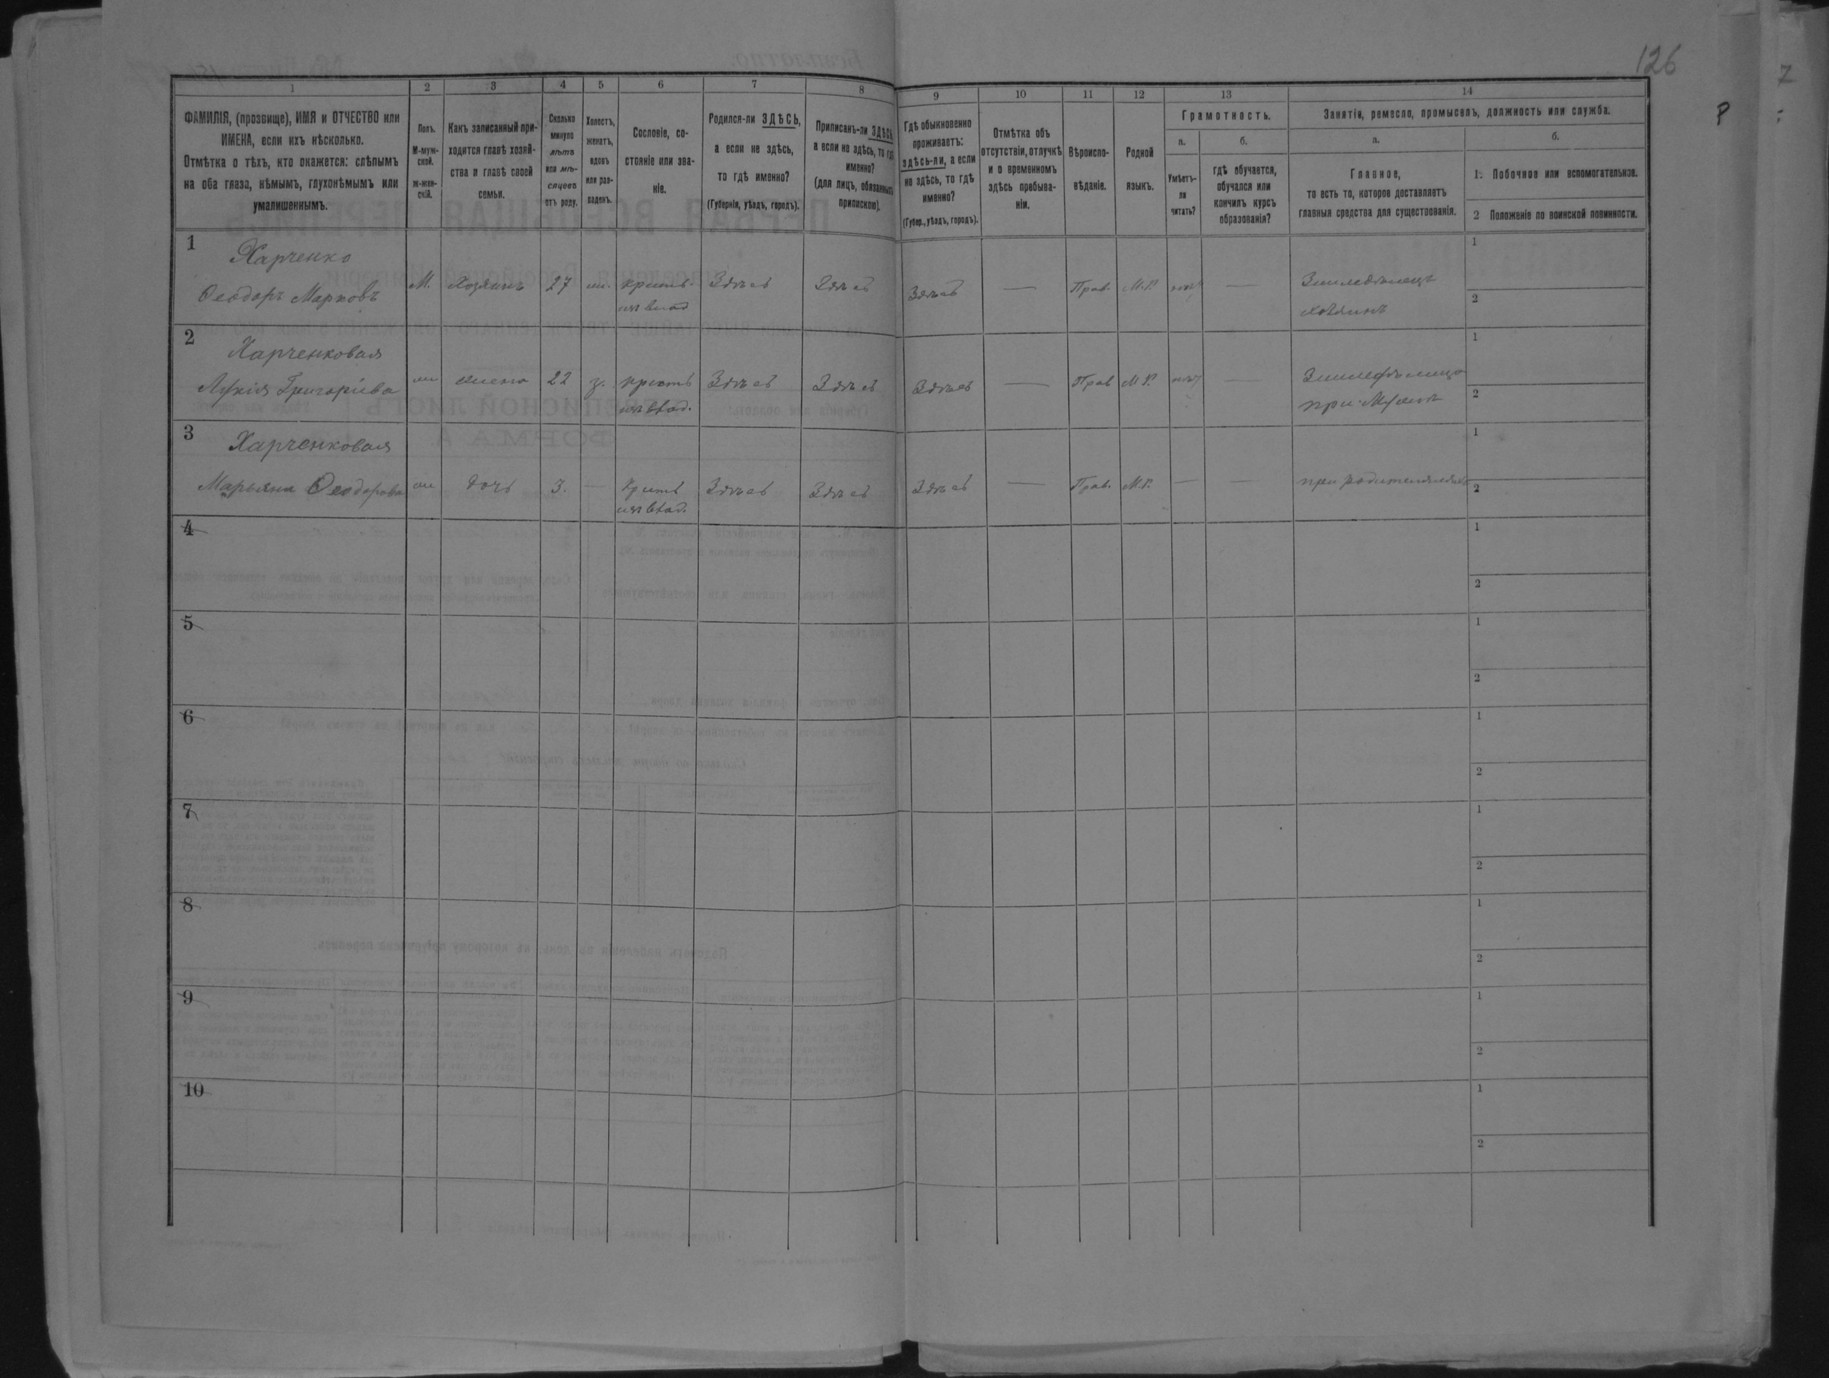 126
1 2 3 4 5 6 7 8 9 10 11 12 13 14
ФАМИЛІЯ, (прозвище), ИМЯ и ОТЧЕСТВО или
ИМЕНА, если ихъ нѣсколько.
Отмѣтка о тѣхъ, кто окажется: слѣпымъ
на оба глаза, нѣмымъ, глухонѣмымъ или
умалишеннымъ.
Полъ.
М-муж-
ской.
ж-жен-
скій.
Какъ записанный при-
ходится главѣ хозяй-
ства и главѣ своей
семьи.
Сколько
минуло
лѣтъ
или мѣ-
сяцевъ
отъ роду.
Холостъ,
женатъ,
вдовъ
или раз-
веденъ.
Сословіе, со-
стояніе или зва-
ніе.
Родился-ли ЗДѢСЬ,
а если не здѣсь,
то гдѣ именно?
(Губернія, уѣздъ, городъ).
Приписанъ-ли ЗДѢСЬ
а если не здѣсь, то гдѣ
именно?
(для лицъ, обязанныхъ
припискою).
Гдѣ обыкновенно
проживаетъ:
здѣсь-ли, а если
не здѣсь, то гдѣ
именно?
(Губер., уѣздъ, городъ).
Отмѣтка объ
отсутствіи, отлучкѣ
и о временномъ
здѣсь пребыва-
ніи.
Вѣроиспо-
вѣданіе.
Родной
языкъ.
Грамотность.
а.
Умѣетъ-
ли
читать?
б.
гдѣ обучается,
обучался или
кончилъ курсъ
образованія?
Занятіе, ремесло, промыселъ, должность или служба.
а.
Главное,
то есть то, которое доставляетъ
главныя средства для существованія.
б.
1. Побочное или вспомогательное.
2 Положеніе по воинской повинности.
1
Харченко
Ѳеодоръ Марковъ
М. Хозяинъ 27 Здѣсь Здѣсь Здѣсь — Прав. М.Р. нѣтъ — Земледѣлецъ
хозяинъ
1
2
2
Харченковая
Лукія Григоріева
жена 22 з. крест. Здѣсь Здѣсь Здѣсь — Прав М.Р. нѣтъ —
при мужѣ
1
2
3
Харченковая
Марьяна Ѳеодорова
дочь 3. — Здѣсь Здѣсь Здѣсь — Прав. М.Р. — — при родителяхъ
1
2
4
1
2
5
1
2
6
1
2
7
1
2
8
1
2
9
1
2
10
1
2